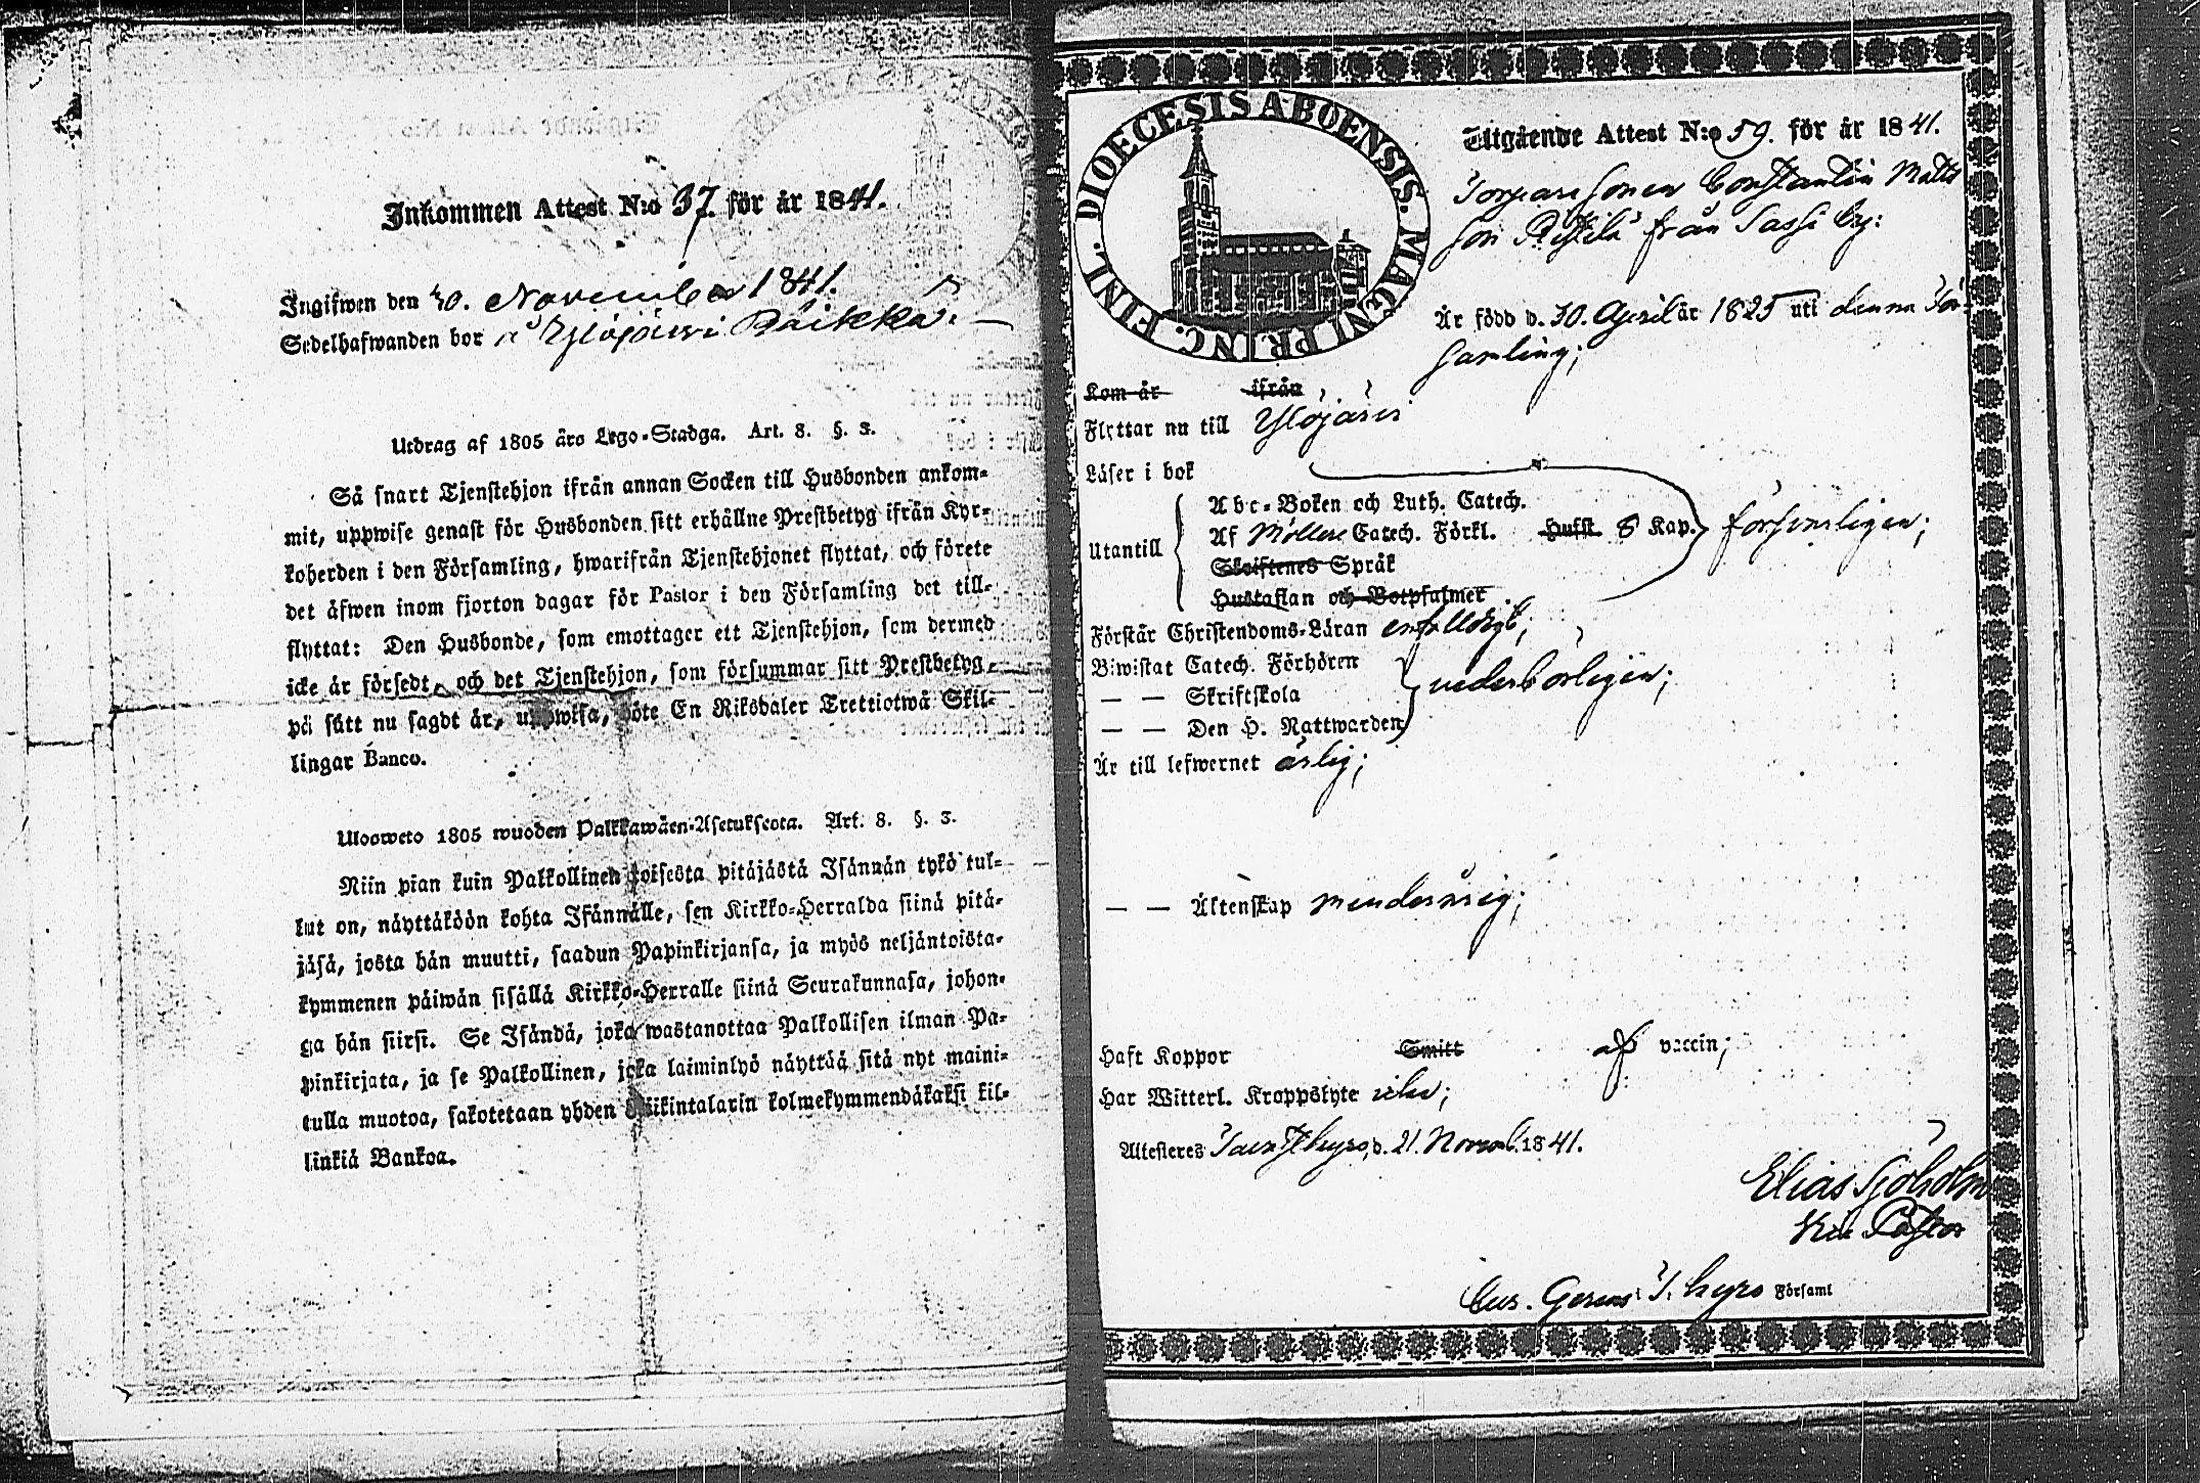 Inkommen Attest N:o 37. för år 1841.
Ingifwen den 30. November 1841.
Sedelhafwanden bor i Ylöjärvi Räikkä.
Utdrag af 1805 års Lego-Stadga. Art. 8. §. 3.
Så snart Tjenstehjon ifrån annan Socken till Husbonden ankom-
mit, uppwise genast för Husbonden sitt erhållne Prestbetyg ifrån Kyr-
koherden i den Församling, hwarifrån Tjenstehjonet flyttat, och förete
det äfwen inom fjorton dagar för Pastor i den Församling det till-
flyttat: Den Husbonde, som emottager ett Tjenstehjon, som dermed
icke är försedt, och det Tjenstehjon, som försummar sitt Prestbetyg,
på sätt nu sagdt är, uppwisa, böte En Riksdaler Trettiotwå Skil-
lingar Banco.
Uloswето 1805 wuoden Palkkawäen-Asetuksesta. Art. 8. §. 3.
Niin pian kuin Palkollinen toisesta pitäjästä Isännän tykö tul-
lut on, näyttäköön kohta Isännälle, sen Kirkko-Herralda siinä pitä-
jäsä, josta hän muutti, saadun Papinkirjansa, ja myös neljäntoista-
kymmenen päiwän sisällä Kirkko-Herralle siinä Seurakunnasa, johon-
ga hän siirsi. Se Isändä, joka wastanottaa Palkollisen ilman Pa-
pinkirjata, ja se Palkollinen, joka laiminlyö näyttää sitä nyt maini-
tulla muotoa, sakotetaan yhden Riikintalarin kolmekymmendäkaksi kil-
linkiä Bankoa.
FINL. DIOECESIS ABOENSIS. MAGNI PRINC.
Utgående Attest N:o 59. för år 1841.
Torpare sonen Constantin Matts
son från Sassi by:
Är född d. 30. April år 1825 uti denna För-
samling;
Kom år ifrån
Flyttar nu till Ylöjärvi
Läser i bok
Abc-Boken och Luth. Catech.
Utantill Af Möllers Catech. Förkl. Hufst. 8 Kap. försvarligen;
Skriftenes Språk
Hustaflan och Botpsalmer
Förstår Christendoms-Läran enfaldigt;
Biwistat Catech. Förhören
— — Skriftskola vederbörligen;
— — Den H. Nattwarden
Är till lefwernet ärlig;
— — Äktenskap minderårig;
Haft Koppor Smitt af vaccin;
Har Witterl. Kroppslyte icke;
Attesteres Tavastkyro, d. 21. Novemb. 1841.
Elias Sjöholm
Vice Pastor
Cur. Gerens i T. kyro Församl